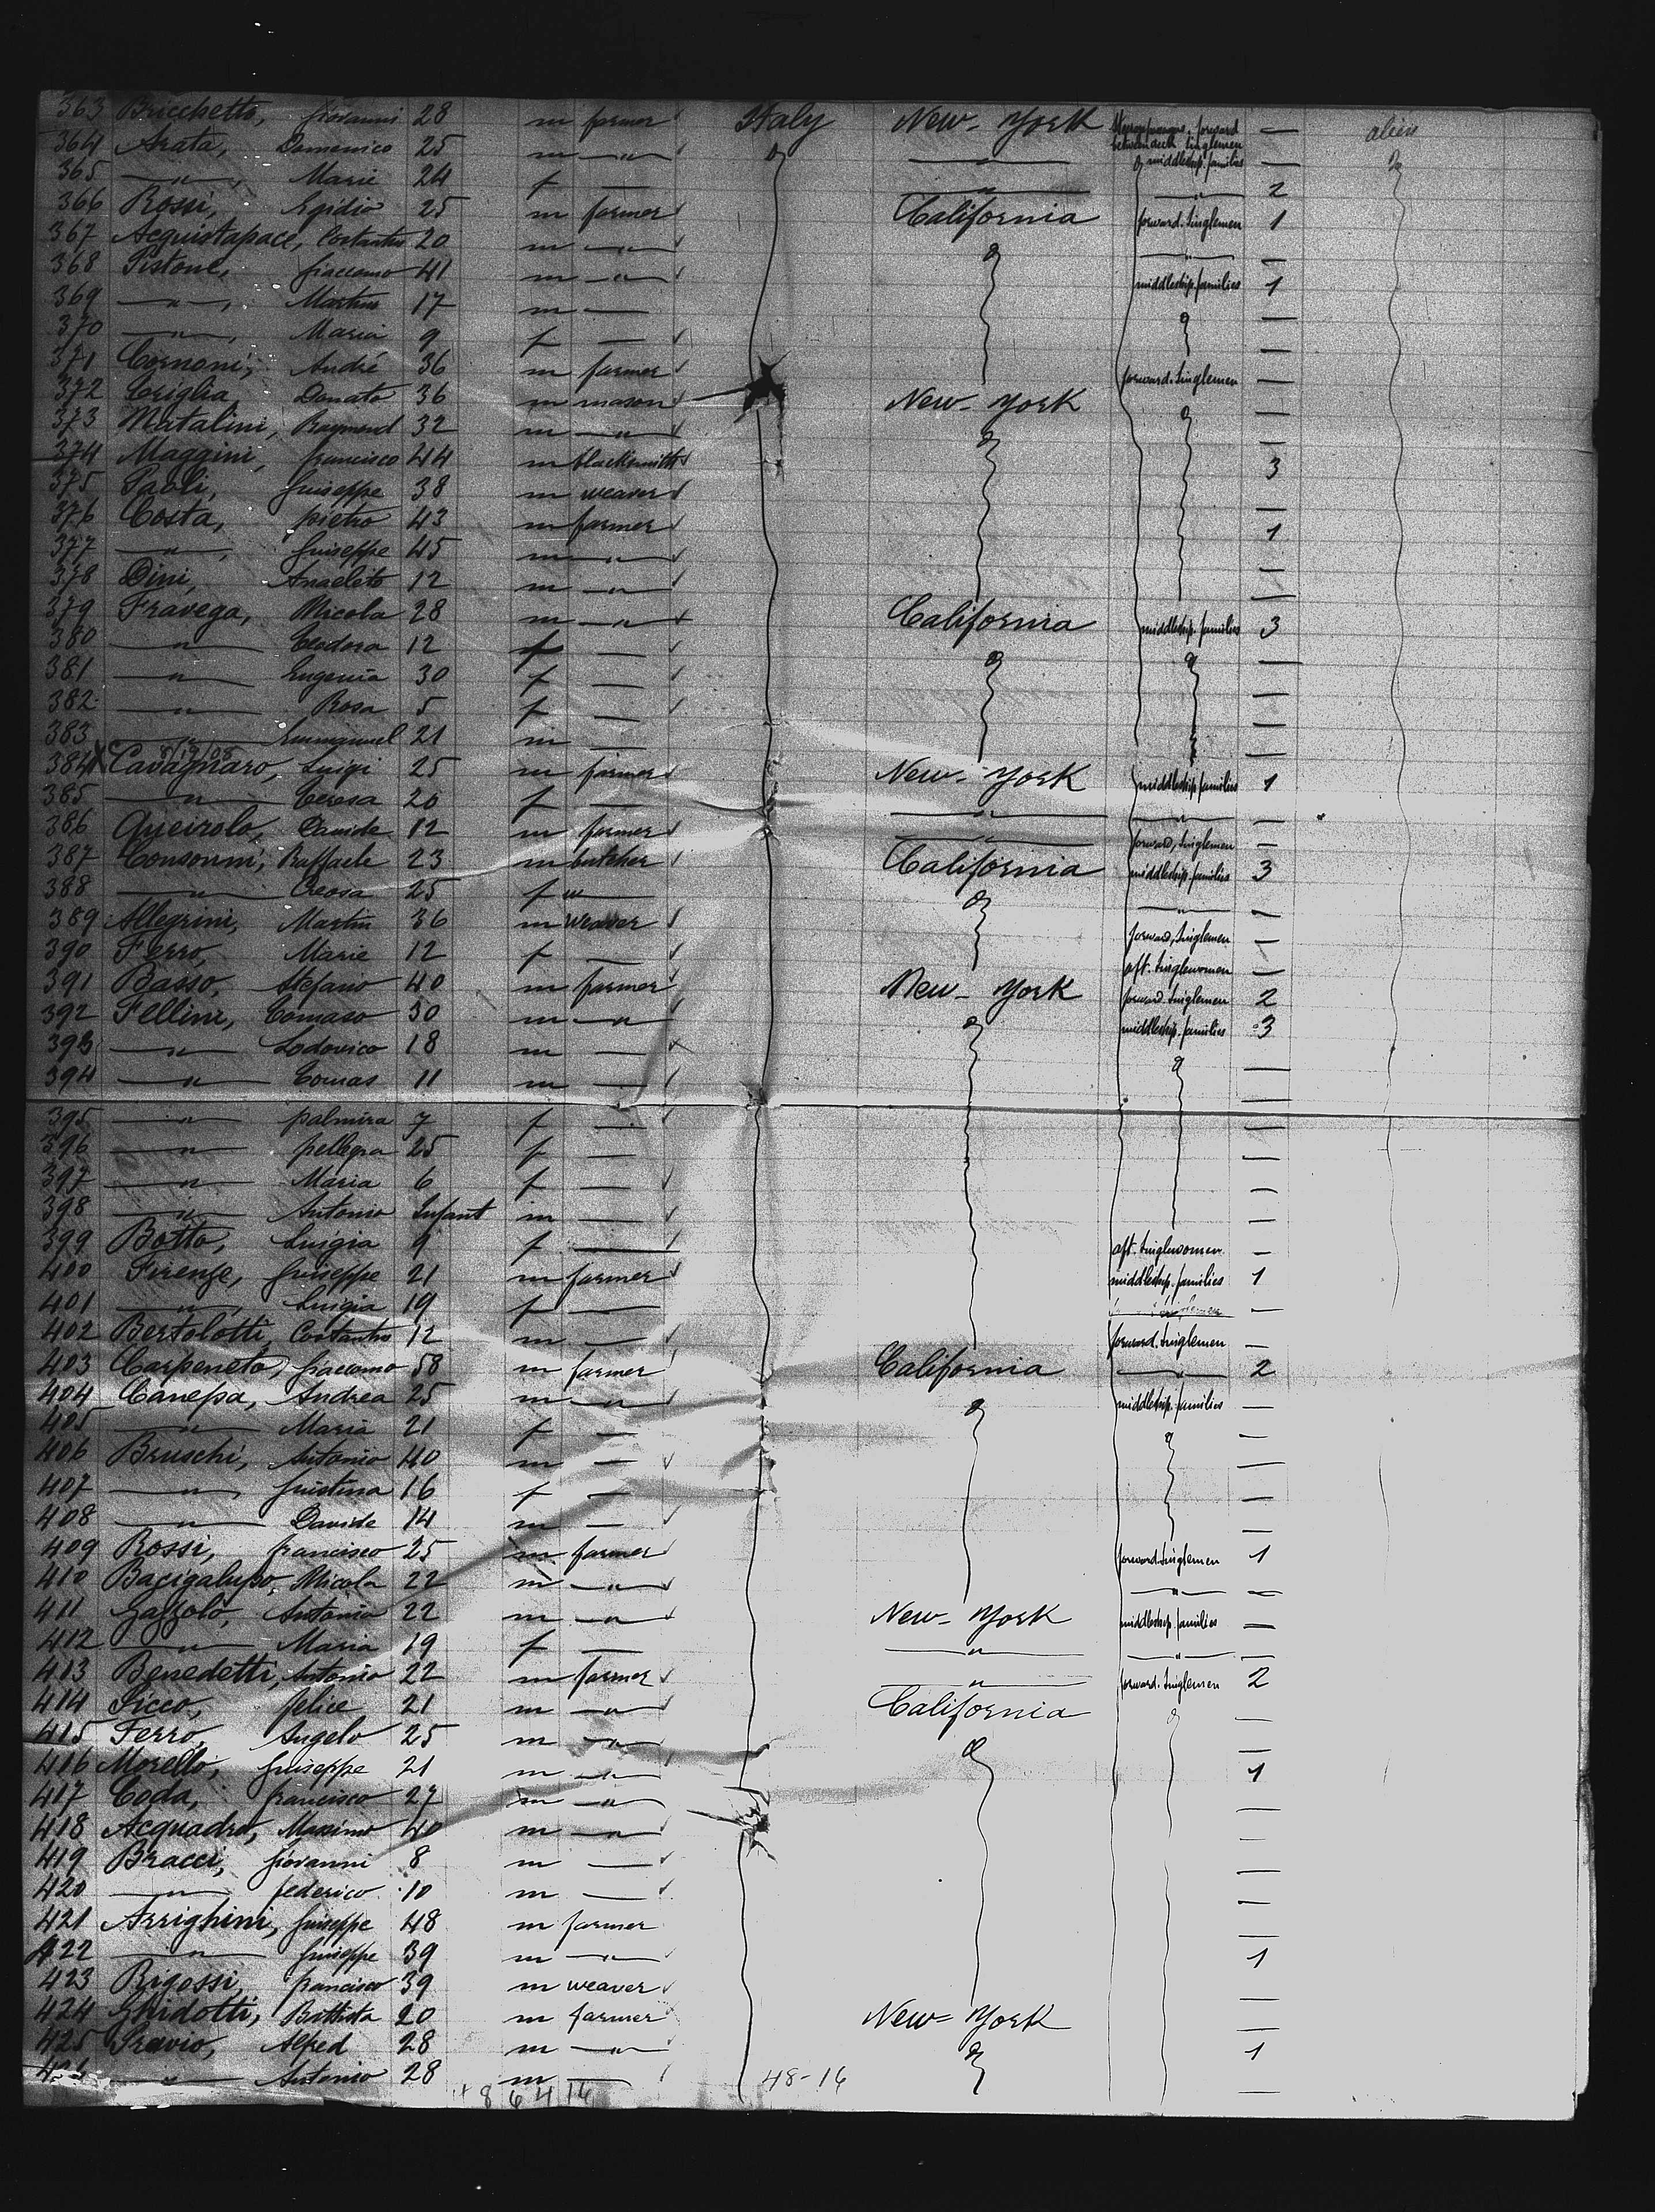 363 Bricchetto, Giovanni 28 m farmer Italy New-York forward — alien
between deck singlemen
364 Arata, Domenico 25 m —"— —"— middleship. families —
365 —"—, Marie 24 f — —"— —"— 2
366 Rossi, Egidio 25 m farmer California forward. singlemen 1
367 Acquistapace, Costantin 20 m —"— —"— —
368 Pistone, Giaccomo 41 m —"— middleship. families 1
369 —"—, Martin 17 m — —
370 —"—, Maria 9 f — —
371 Cornoni, André 36 m farmer forward. singlemen —
372 Criglia, Donato 36 m mason New-York —
373 Matalini, Raymond 32 m —"— —
374 Maggini, Francisco 44 m blacksmith 3
375 Paoli, Giuseppe 38 m weaver —
376 Costa, Pietro 43 m farmer 1
377 —"—, Giuseppe 45 m —"— —
378 Dini, Anacleto 12 m —"— —
379 Fravega, Nicola 28 m —"— California middleship. families 3
380 —"— Teodora 12 f — —
381 —"— Eugenia 30 f — —
382 —"— Rosa 5 f — —
383 —"— Emmanuel 21 m — —
8/19/08
384 X Cavagnaro, Luigi 25 m farmer New-York middleship families 1
385 —"— Teresa 20 f — —"— —"— —
386 Queirolo, Davide 12 m farmer —"— forward, singlemen —
387 Consonni, Raffaele 23 m butcher California middleship. families 3
388 —"— Creosa 25 f — —"— —
389 Allegrini, Martin 36 m weaver forward, singlemen —
390 Ferro, Marie 12 f — aft. singlewomen —
391 Basso, Stefano 40 m farmer New-York forward. singlemen 2
392 Fellini, Tomaso 30 m —"— middleship. families 3
393 —"— Lodovico 18 m — —
394 —"— Tomas 11 m — —
395 —"— Palmira 7 f — —
396 —"— Pellegra 25 f — —
397 —"— Maria 6 f — —
398 —"— Antonio Infant m — —
399 Botto, Luigia 9 f — aft. singlewomen —
400 Firenze, Giuseppe 21 m farmer middleship. families 1
401 —"—, Luigia 19 f — —
402 Bertolotti, Costantin 12 m — forward. singlemen —
403 Carpeneto, Giaccomo 58 m farmer California —"— 2
404 Canepa, Andrea 25 m —"— middleship. families —
405 —"— Maria 21 f — —
406 Bruschi, Antonio 40 m — —
407 —"—, Giustina 16 f — —
408 —"— Davide 14 m — —
409 Rossi, Francisco 25 m farmer forward. singlemen 1
410 Bacigalupo, Nicola 22 m —"— —"— —
411 Gazzolo, Antonio 22 m —"— New-York middleship. families —
412 —"— Maria 19 f — —"— —"— —
413 Benedetti, Antonio 22 m farmer —"— forward. singlemen 2
414 Sicco, Felice 21 m —"— California —
415 Ferro, Angelo 25 m —"— —
416 Morello, Giuseppe 21 m —"— 1
417 Coda, Francisco 27 m —"— —
418 Acquadro, Massimo 40 m —"— —
419 Bracci, Giovanni 8 m — —
420 —"—, Federico 10 m — —
421 Arrighini, Giuseppe 48 m farmer —
422 —"— Giuseppe 39 m —"— 1
423 Rigossi, Francisco 39 m weaver —
424 Ghidotti, Battista 20 m farmer New-York —
425 Travio, Alfred 28 m —"— 1
426 —"— Antonio 28 m — —
+ 8 6 4 14 48-16